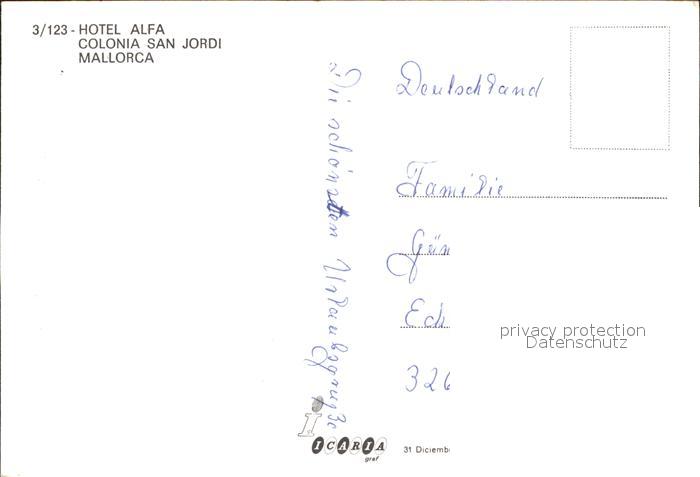 3/123 - HOTEL ALFA
COLONIA SAN JORDI
MALLORCA
Die schönsten Urlaubsgrüße
Deutschland
Familie
Gün
Ech
326
privacy protection
Datenschutz
ICARIA
graf
31 Diciemb